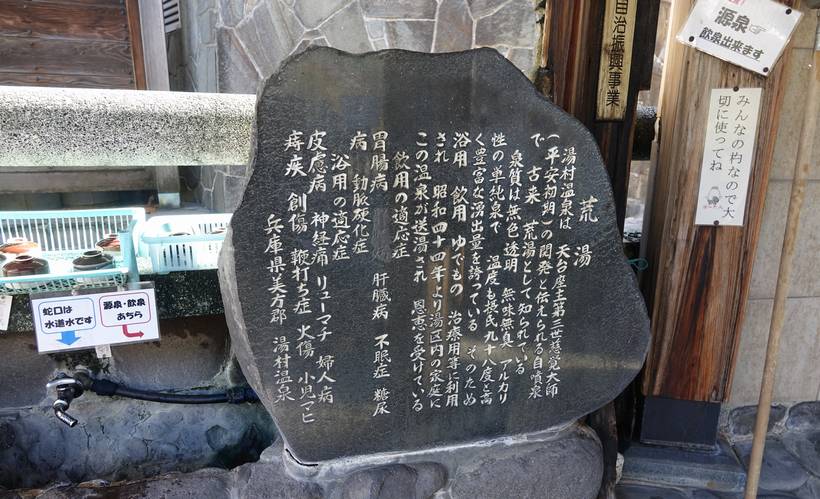 荒湯
湯村温泉は 天台座主第三世慈覚大師
(平安初期)の開発と伝えられる自噴泉
で 古来 荒湯として知られている
泉質は無色 透明 無味無臭で アルカリ
性の単純泉で 温度も摂氏九十八度と高
く豊富な湧出量を誇っている そのため
浴用 飲用 ゆでもの 治療用等に利用
され 昭和四十四年より湯区内の家庭に
この温泉が送湯され 恩恵を受けている
飲用の適応症
胃腸病 肝臓病 不眠症 糖尿
病 動脈硬化症
浴用の適応症
皮膚病 神経痛 リューマチ 婦人病
痔疾 創傷 鞭打ち症 火傷 小児マヒ
兵庫県美方郡 湯村温泉
自治振興事業
源泉
飲泉出来ます
みんなの杓なので大
切に使ってね
蛇口は
水道水です
源泉・飲泉
あちら